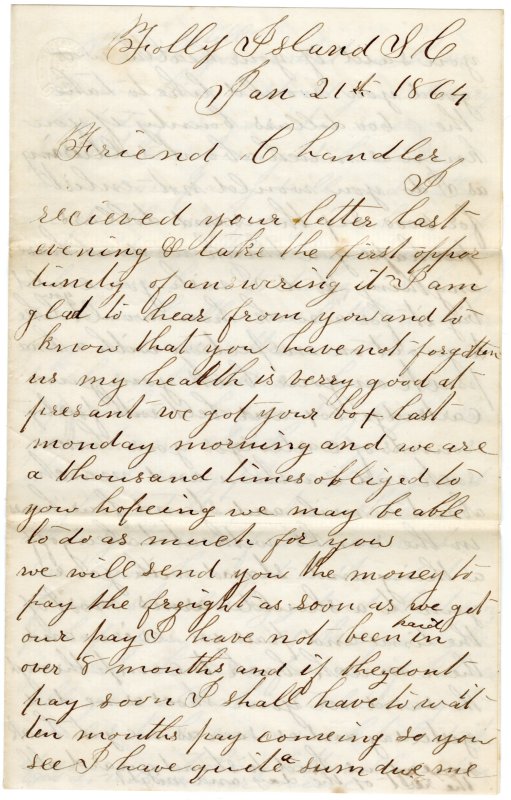 Folly Island S C
Jan 21st 1864
Friend Chandler
I
recieved your letter last
evening & take the first oppor
tunity of answering it I am
glad to hear from you and to
know that you have not forgotten
us my health is verry good at
presant we got your box last
monday morning and we are
a thousand times obliged to
you hopeing we may be able
to do as much for you
we will send you the money to
pay the freight as soon as we get
our pay I have not been paid in
over 8 months and if they dont
pay soon I shall have to wait
ten months pay comeing so you
see I have quite a sum due me